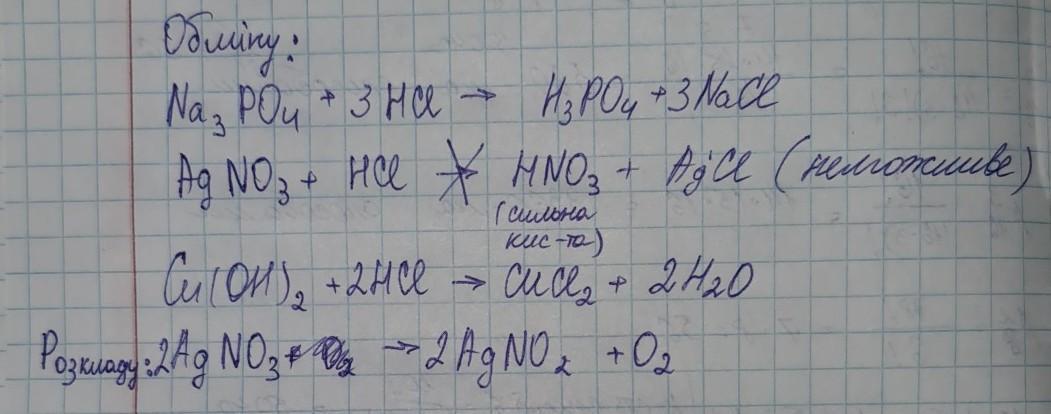 Обміну:
Na₃PO₄ + 3HCl → H₃PO₄ + 3NaCl
AgNO₃ + HCl ↛ HNO₃ + AgCl (неможливе)
(сильна
кис-та)
Cu(OH)₂ + 2HCl → CuCl₂ + 2H₂O
Розкладу: 2AgNO₃ → 2AgNO₂ + O₂